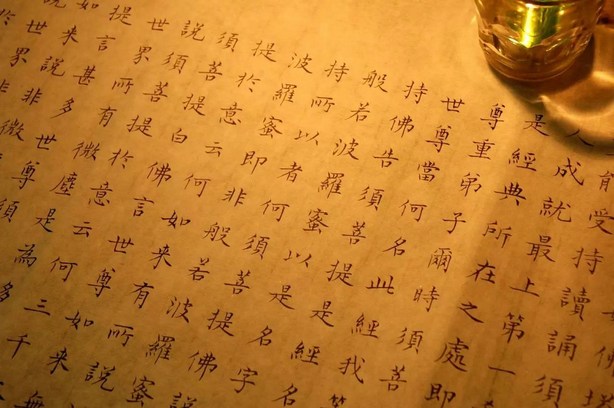 能受持讀誦須
人成就最上第一
是經典所在之處即
尊重弟子爾時須菩
世尊當何名此經我等
持佛告須菩提是經名
般若波羅蜜以是名字
持所以者何須菩提佛
波羅蜜即非般若波羅蜜說
提於意云何如來有所說
須菩提白佛言世尊如來
說須菩提於意云何三千
世界所有微塵是為多
提言甚多世尊須
如來說非微
世界非